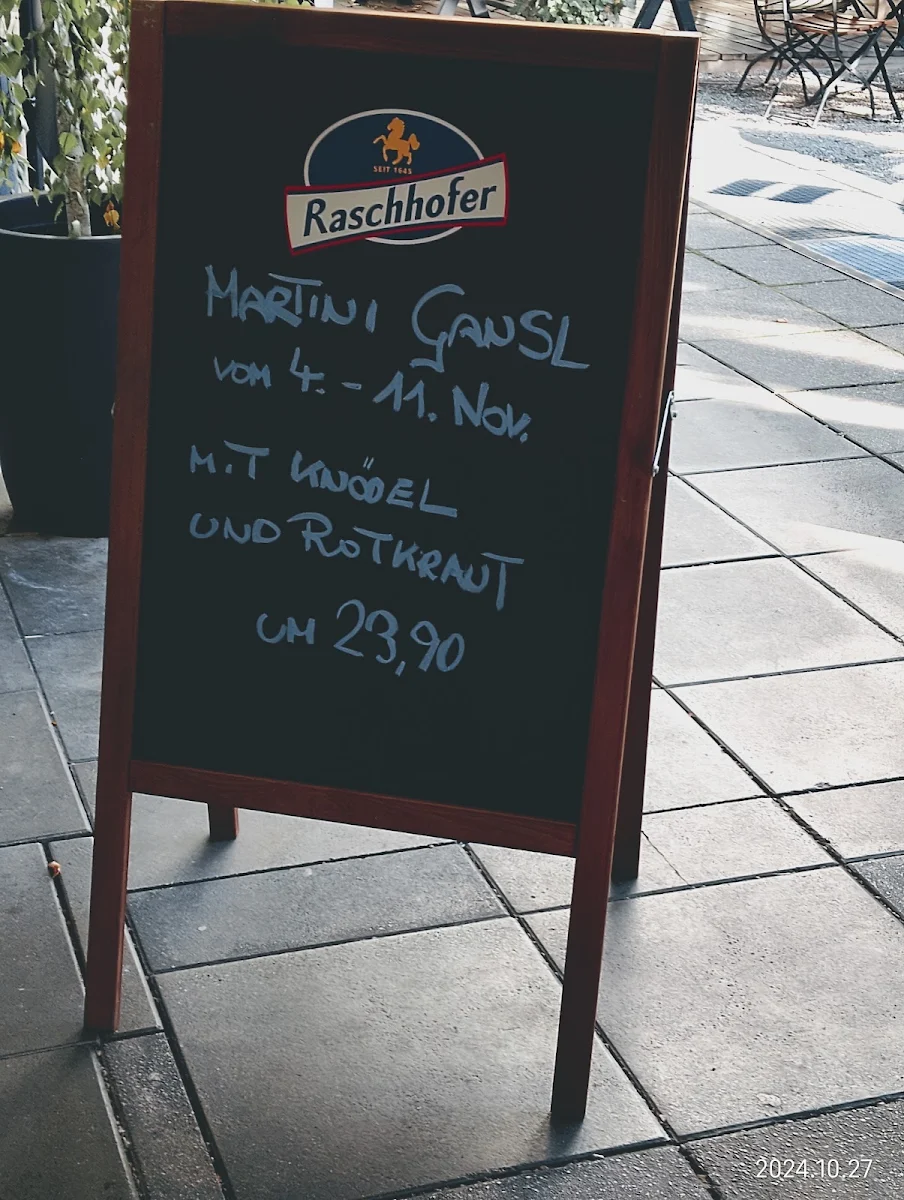 SEIT 1645
Raschhofer
MARTINI GANSL
VOM 4. - 11. NOV.
MIT KNÖDEL
UND ROTKRAUT
UM 23,90
2024.10.27